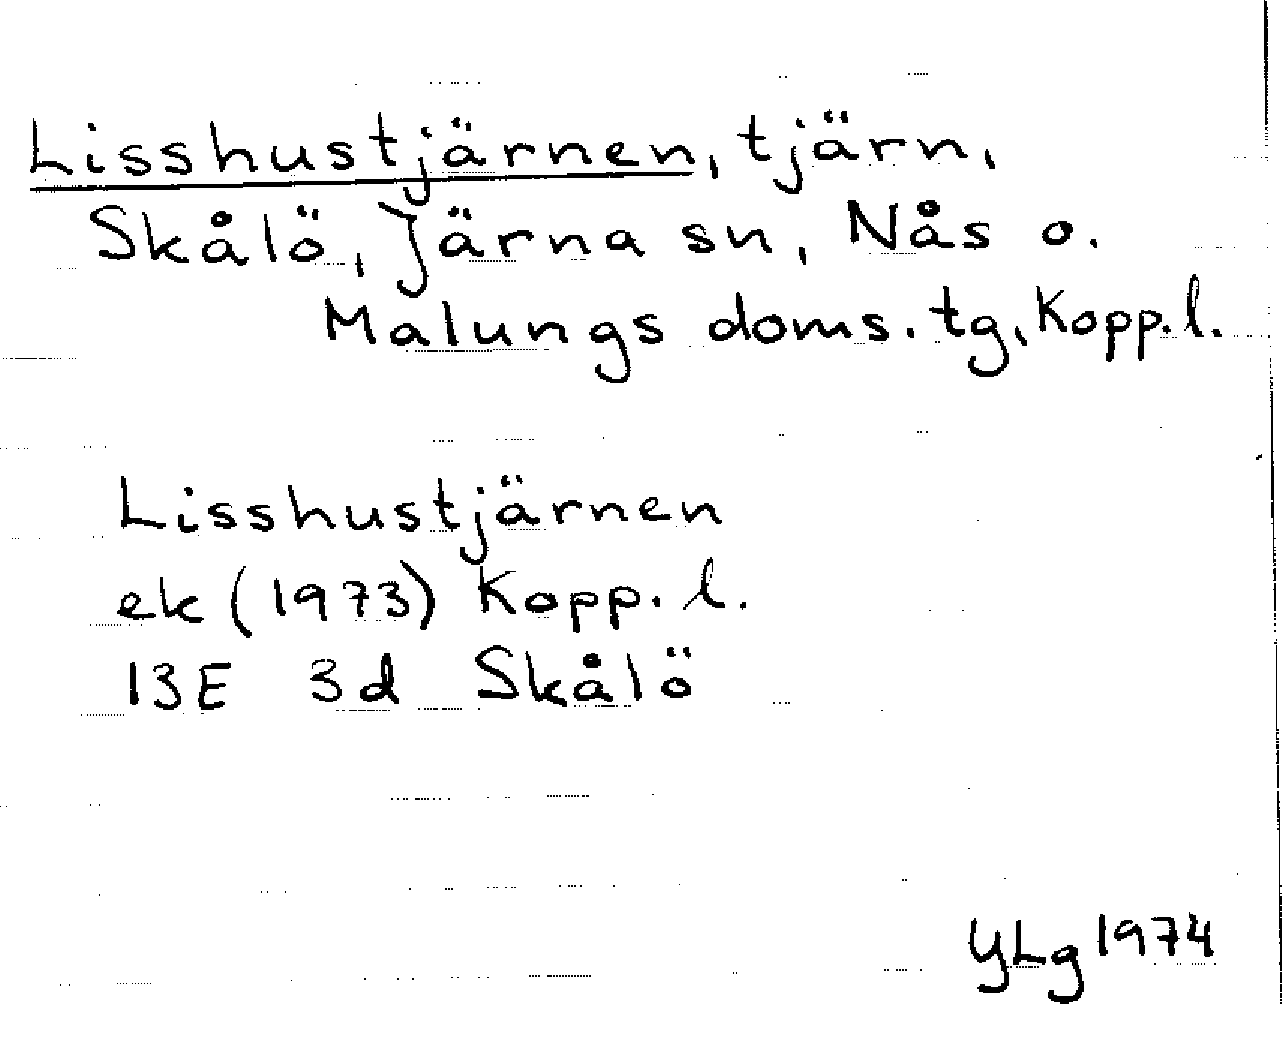 Lisshustjärnen, tjärn,
Skålö, Järna sn, Nås o.
Malungs doms.tg, Kopp.l.
Lisshustjärnen
ek (1973) Kopp. l.
13E 3d Skålö
YLg 1974